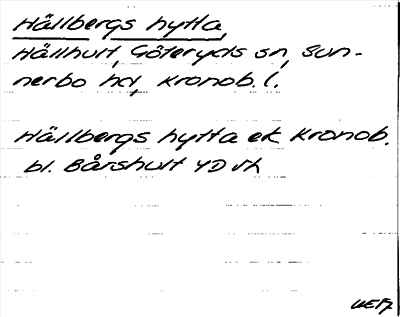 Hällbergs hytta,
Hällhult, Göteryds sn, Sun-
nerbo hd, Kronob. l.
Hällbergs hytta ek Kronob.
bl. Bårshult